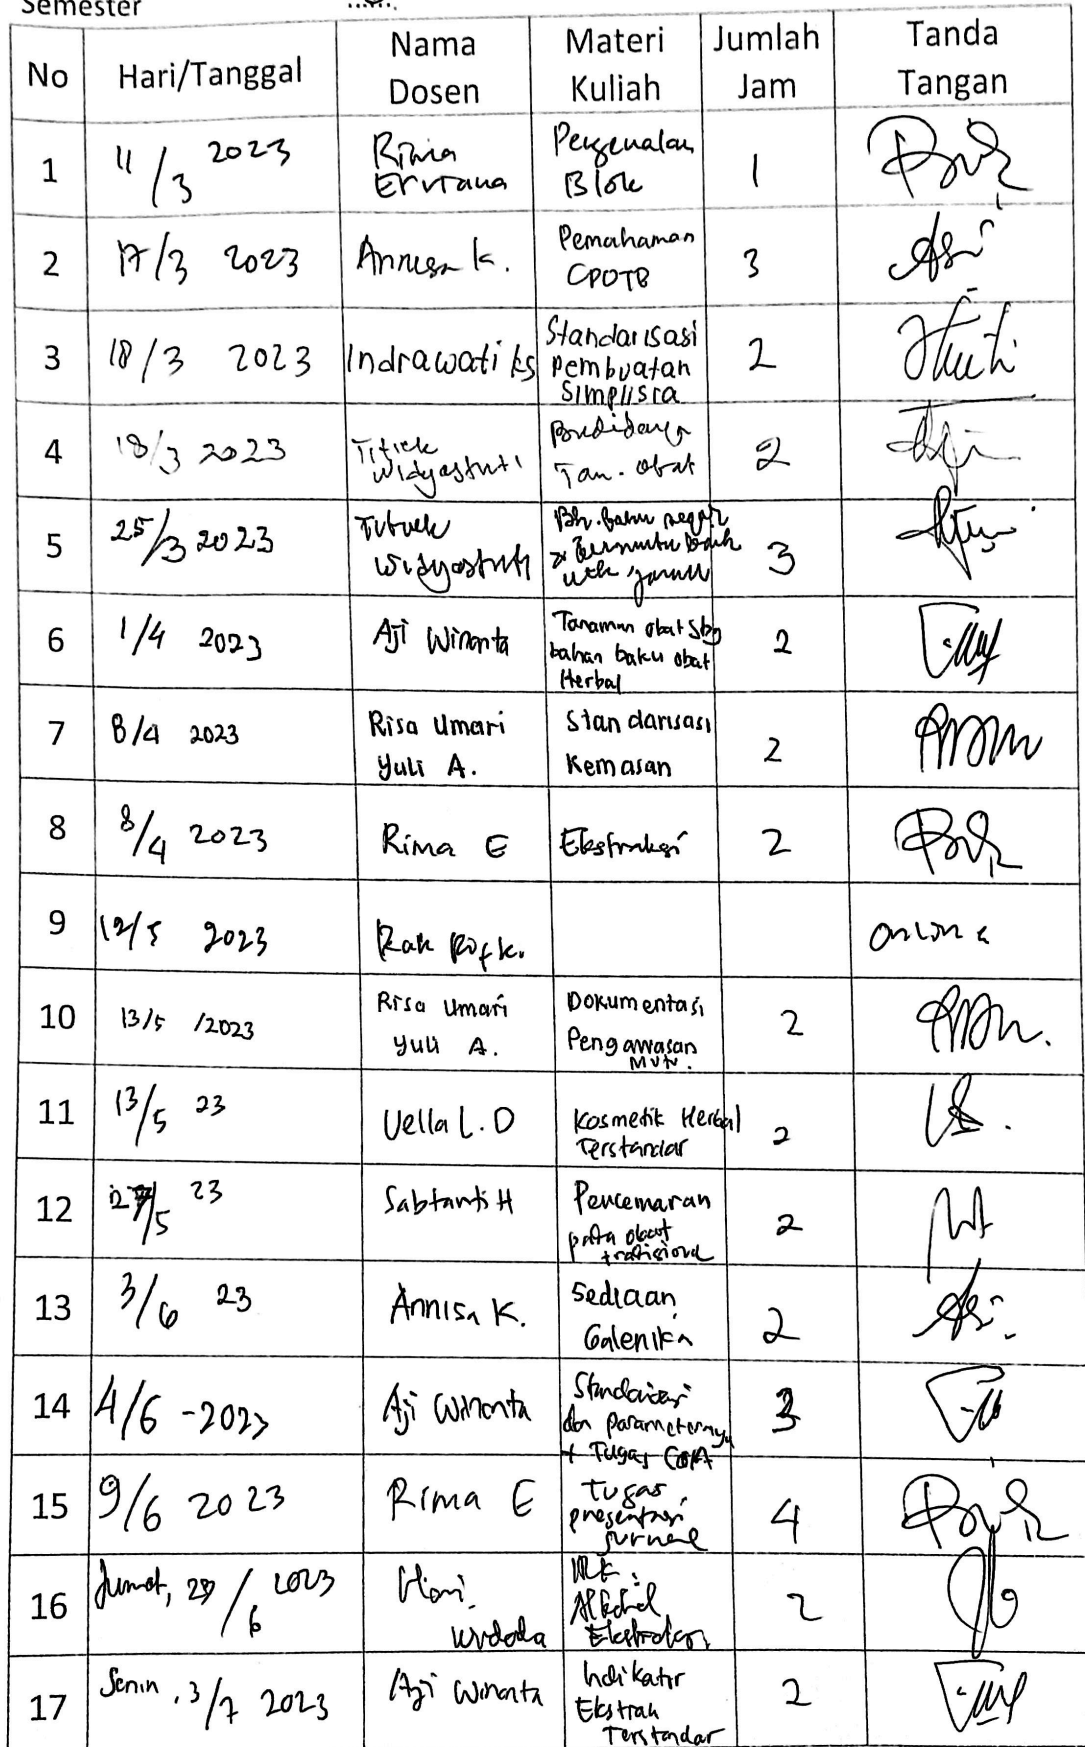 Semester
No Hari/Tanggal Nama Dosen Materi Kuliah Jumlah Jam Tanda Tangan
1 11/3 2023 Rima Erviana Pengenalan Blok 1
2 17/3 2023 Annisa K. Pemahaman CPOTB 3
3 18/3 2023 Indrawati KS Standarisasi Pembuatan Simplisia 2
4 18/3 2023 Titiek Widyastuti Budidaya Tan. obat 2
5 25/3 2023 Titiek Widyastuti Bh. baku segar 3
6 1/4 2023 Aji Winanta Tanaman obat sbg bahan baku obat Herbal 2
7 8/4 2023 Risa Umari Yuli A. Standarisasi Kemasan 2
8 8/4 2023 Rima E Ekstraksi 2
9 12/5 2023 online
10 13/5 /2023 Risa Umari Yuli A. Dokumentasi Pengawasan Mutu. 2
11 13/5 23 Vella L. D Kosmetik Herbal Terstandar 2
12 27/5 23 Sabtanti H Pencemaran pada obat tradisional 2
13 3/6 23 Annisa K. Sediaan Galenika 2
14 4/6 -2023 Aji Winanta Standarisasi dan parameternya + Tugas CoA 3
15 9/6 2023 Rima E Tugas presentasi jurnal 4
16 Jumat, /6 2023 Hari Widada Alkohol 2
17 Senin, 3/7 2023 Aji Winanta Indikator Ekstrak Terstandar 2